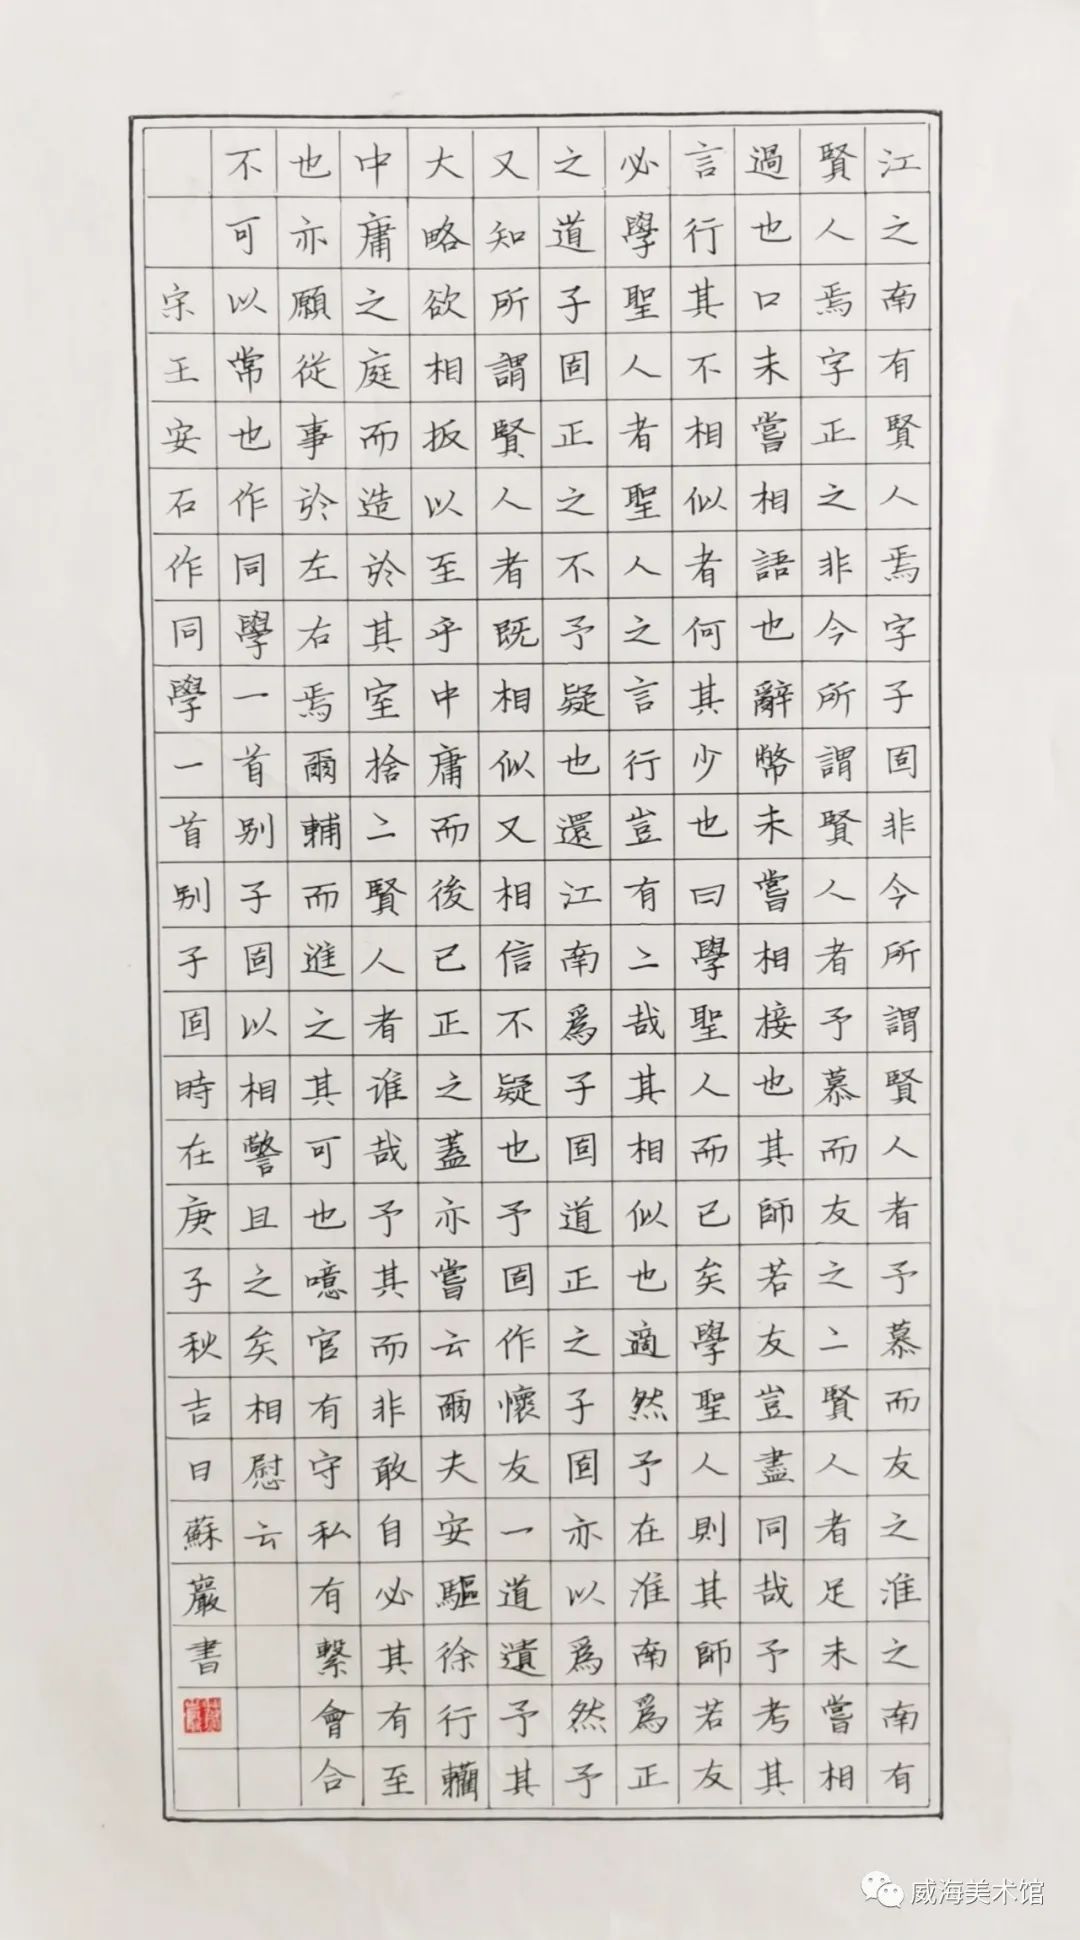 江之南有賢人焉字子固非今所謂賢人者予慕而友之淮之南有
賢人焉字正之非今所謂賢人者予慕而友之二賢人者足未嘗相
過也口未嘗相語也辭幣未嘗相接也其師若友豈盡同哉予考其
言行其不相似者何其少也曰學聖人而已矣學聖人則其師若友
必學聖人者聖人之言行豈有二哉其相似也適然予在淮南爲正
之道子固正之不予疑也還江南爲子固道正之子固亦以爲然予
又知所謂賢人者既相似又相信不疑也予固作懷友一道遺予其
大略欲相扳以至乎中庸而後已正之蓋亦嘗云爾夫安驅徐行轥
中庸之庭而造於其室捨二賢人者谁哉予其而非敢自必其有至
也亦願從事於左右焉爾輔而進之其可也噫官有守私有繫會合
不可以常也作同學一首别子固以相警且之矣相慰云
宋王安石作同學一首别子固時在庚子秋吉日蘇巖書
威海美术馆